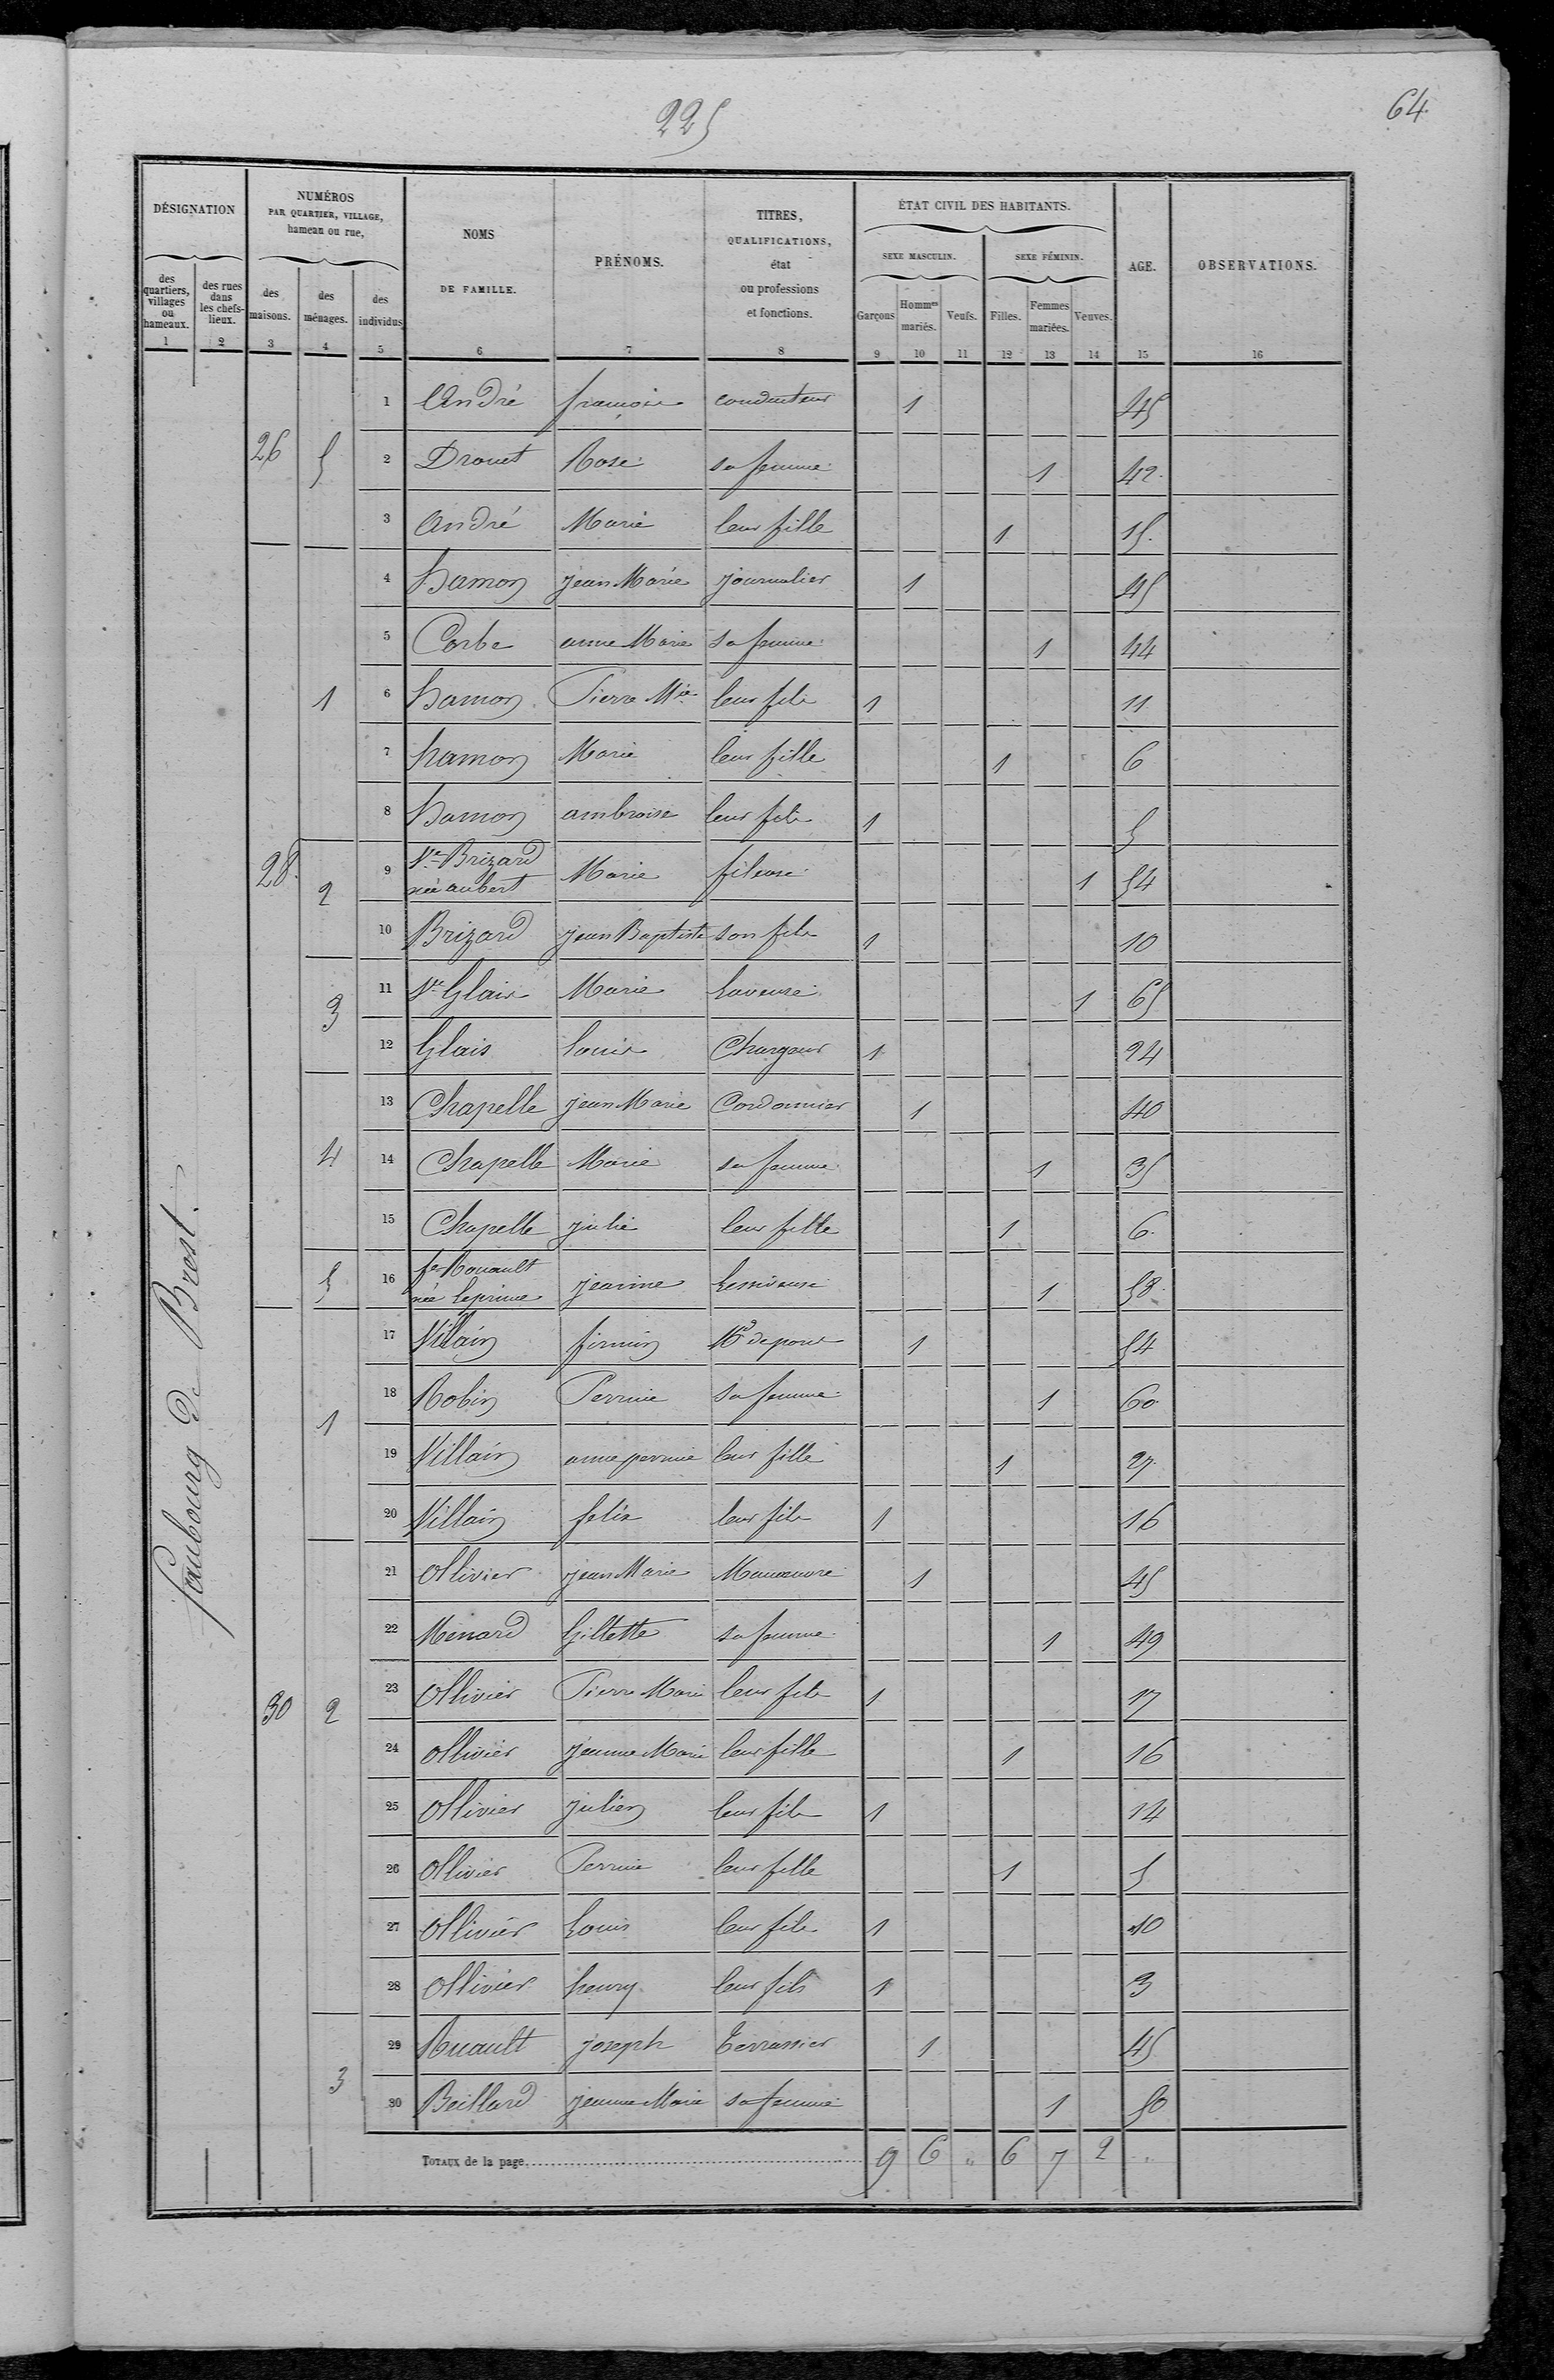 225
64
DÉSIGNATION
NUMÉROS
PAR QUARTIER, VILLAGE,
hameau ou rue,
NOMS
DE FAMILLE.
PRÉNOMS.
TITRES,
QUALIFICATIONS,
état
ou professions
et fonctions.
ÉTAT CIVIL DES HABITANTS.
SEXE MASCULIN.
SEXE FÉMININ.
AGE.
OBSERVATIONS.
des quartiers, villages ou hameaux.
des rues dans les chefs-lieux.
des maisons.
des ménages.
des individus
Garçons
Hommes mariés.
Veufs.
Filles.
Femmes mariées.
Veuves.
1 2 3 4 5 6 7 8 9 10 11 12 13 14 15 16
faubourg de Brest.
1 André françois conducteur 1 45
26 5 2 Drouet Rose sa femme 1 42
3 André Marie leur fille 1 15
4 hamon jean Marie journalier 1 45
5 Corbe anne Marie sa femme 1 44
1 6 hamon Pierre Mie leur fils 1 11
7 hamon Marie leur fille 1 6
8 hamon ambroise leur fils 1 5
28 2 9 Ve Brizard
née aubert Marie fileuse 1 54
10 Brizard jean Baptiste son fils 1 10
3 11 Ve Glais Marie Laveuse 1 65
12 Glais Louis Chargeur 1 24
13 Chapelle jean Marie Cordonnier 1 40
4 14 Chapelle Marie sa femme 1 35
15 Chapelle julie leur fille 1 6
5 16 fe Rouault
née Leprince jeanne Lessiveuse 1 58
17 Villain firmin Md de porcs 1 54
1 18 Robin Perrine Sa femme 1 60
19 Villain anne perrine leur fille 1 27
20 Villain felix leur fils 1 16
21 Ollivier jean Marie Manœuvre 1 45
22 Menard Gillette sa femme 1 49
30 2 23 Ollivier Pierre Marie leur fils 1 17
24 Ollivier jeanne Marie leur fille 1 16
25 Ollivier julien leur fils 1 14
26 Ollivier Perrine leur fille 1 5
27 Ollivier Louis leur fils 1 10
28 Ollivier henry leur fils 1 3
29 Ruault joseph Terrassier 1 45
3 30 Beillard jeanne Marie sa femme 1 50
TOTAUX de la page 9 6 " 6 7 2 "